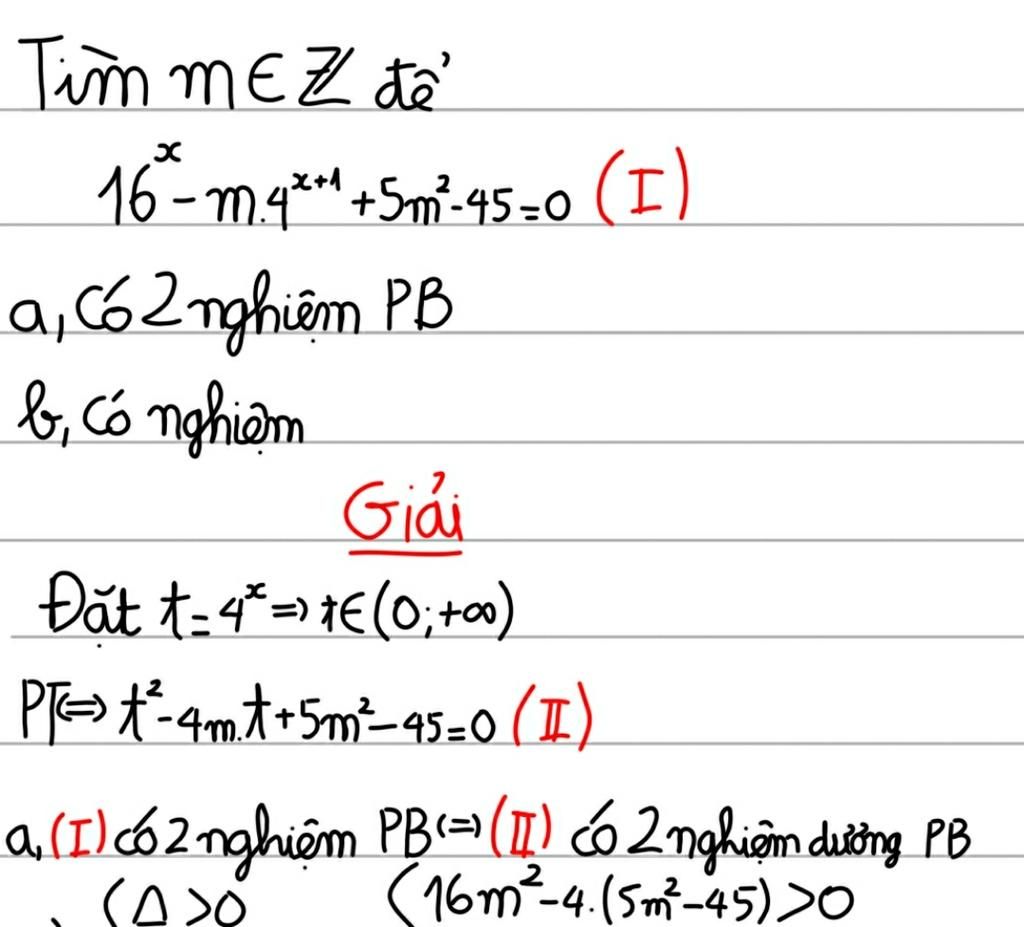 Tìm m∈ℤ để
16^x - m.4^{x+1} + 5m² - 45 = 0 (I)
a, Có 2 nghiệm PB
b, Có nghiệm
Giải
Đặt t = 4^x ⇒ t∈(0;+∞)
PT⇔ t² - 4m.t + 5m² - 45 = 0 (II)
a, (I) có 2 nghiệm PB ⇔ (II) có 2 nghiệm dương PB
{Δ > 0 {16m² - 4.(5m² - 45) > 0